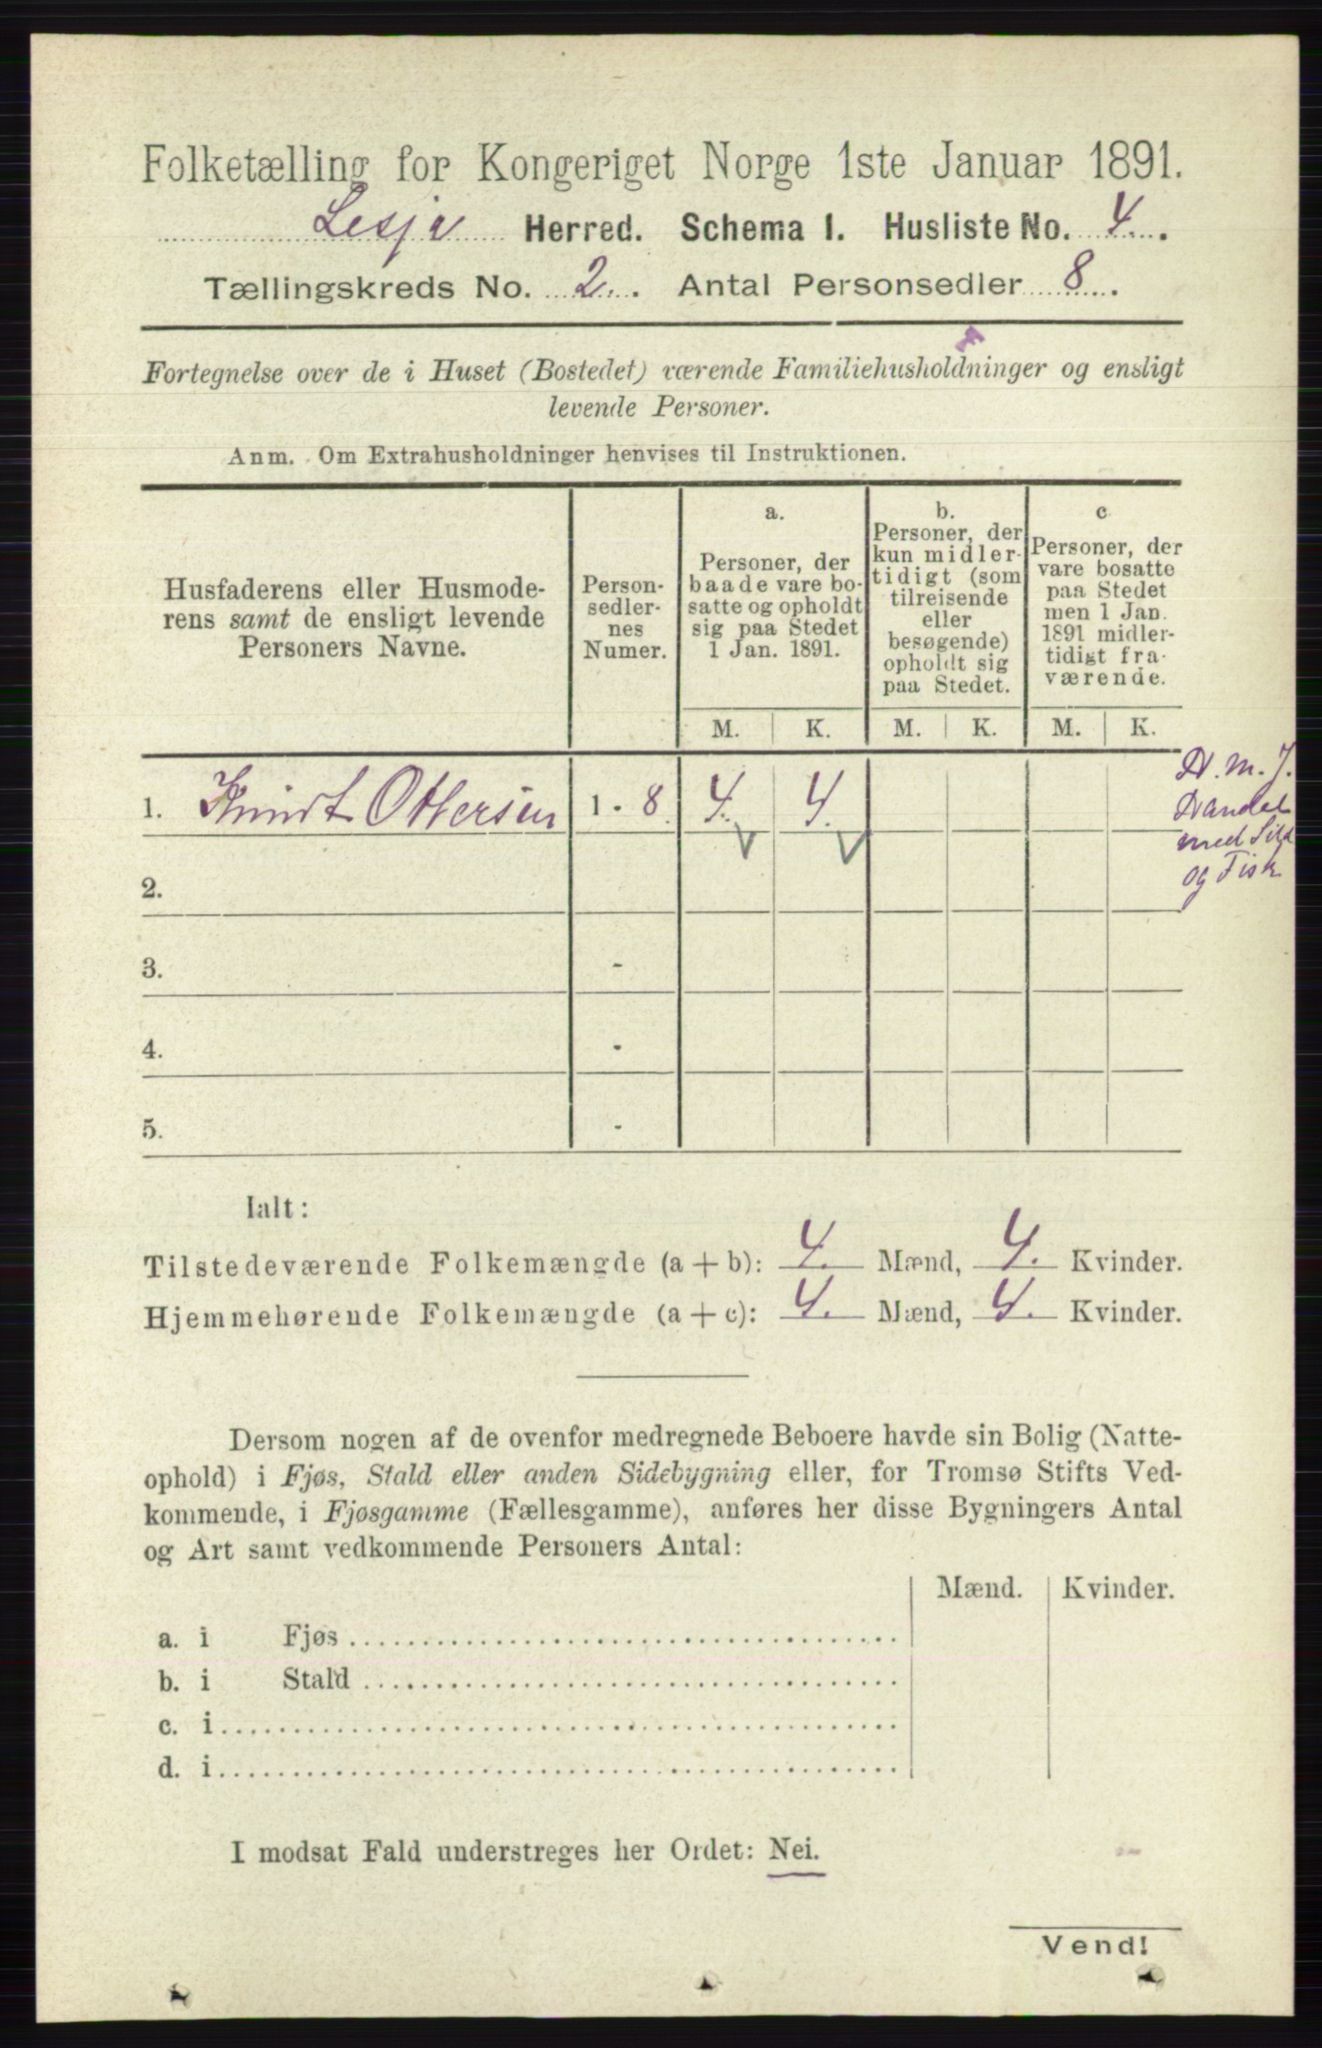 Folketælling for Kongeriget Norge 1ste Januar 1891.
Lesje Herred. Schema I. Husliste No. 4.
Tællingskreds No. 2. Antal Personsedler 8.
F
Fortegnelse over de i Huset (Bostedet) værende Familiehusholdninger og ensligt
levende Personer.
Anm. Om Extrahusholdninger henvises til Instruktionen.
Husfaderens eller Husmode-
rens samt de ensligt levende
Personers Navne.
Person-
sedler-
nes
Numer.
a.
Personer, der
baade vare bo-
satte og opholdt
sig paa Stedet
1 Jan. 1891.
b.
Personer, der
kun midler-
tidigt (som
tilreisende
eller
besøgende)
opholdt sig
paa Stedet.
c
Personer, der
vare bosatte
paa Stedet
men 1 Jan.
1891 midler-
tidigt fra-
værende.
M. K. M. K. M. K.
1. Knudt Ottersen 1 - 8 4. 4.
H. M. J.
Handel
med Sild
og Fisk
2.
3. -
4. -
5. -
Ialt:
Tilstedeværende Folkemængde (a + b): 4. Mænd, 4. Kvinder.
Hjemmehørende Folkemængde (a + c): 4. Mænd, 4. Kvinder.
Dersom nogen af de ovenfor medregnede Beboere havde sin Bolig (Natte-
ophold) i Fjøs, Stald eller anden Sidebygning eller, for Tromsø Stifts Ved-
kommende, i Fjøsgamme (Fællesgamme), anføres her disse Bygningers Antal
og Art samt vedkommende Personers Antal:
Mænd. Kvinder.
a. i Fjøs
b. i Stald
c. i
d. i
I modsat Fald understreges her Ordet: Nei.
Vend!